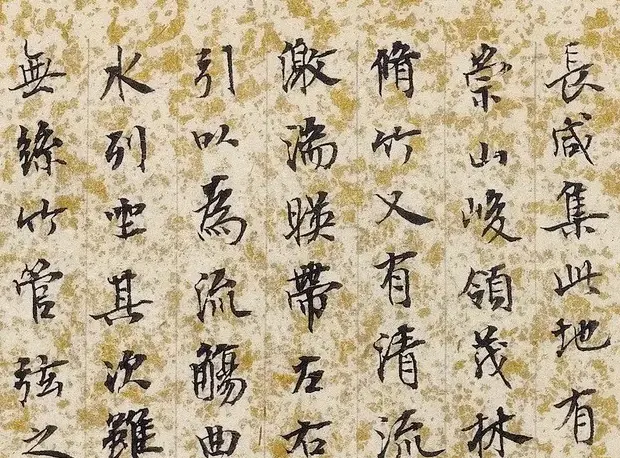 長咸集此地有
崇山峻領茂林
脩竹又有清流
激湍暎帶左右
引以為流觴曲
水列坐其次雖
無絲竹管弦之